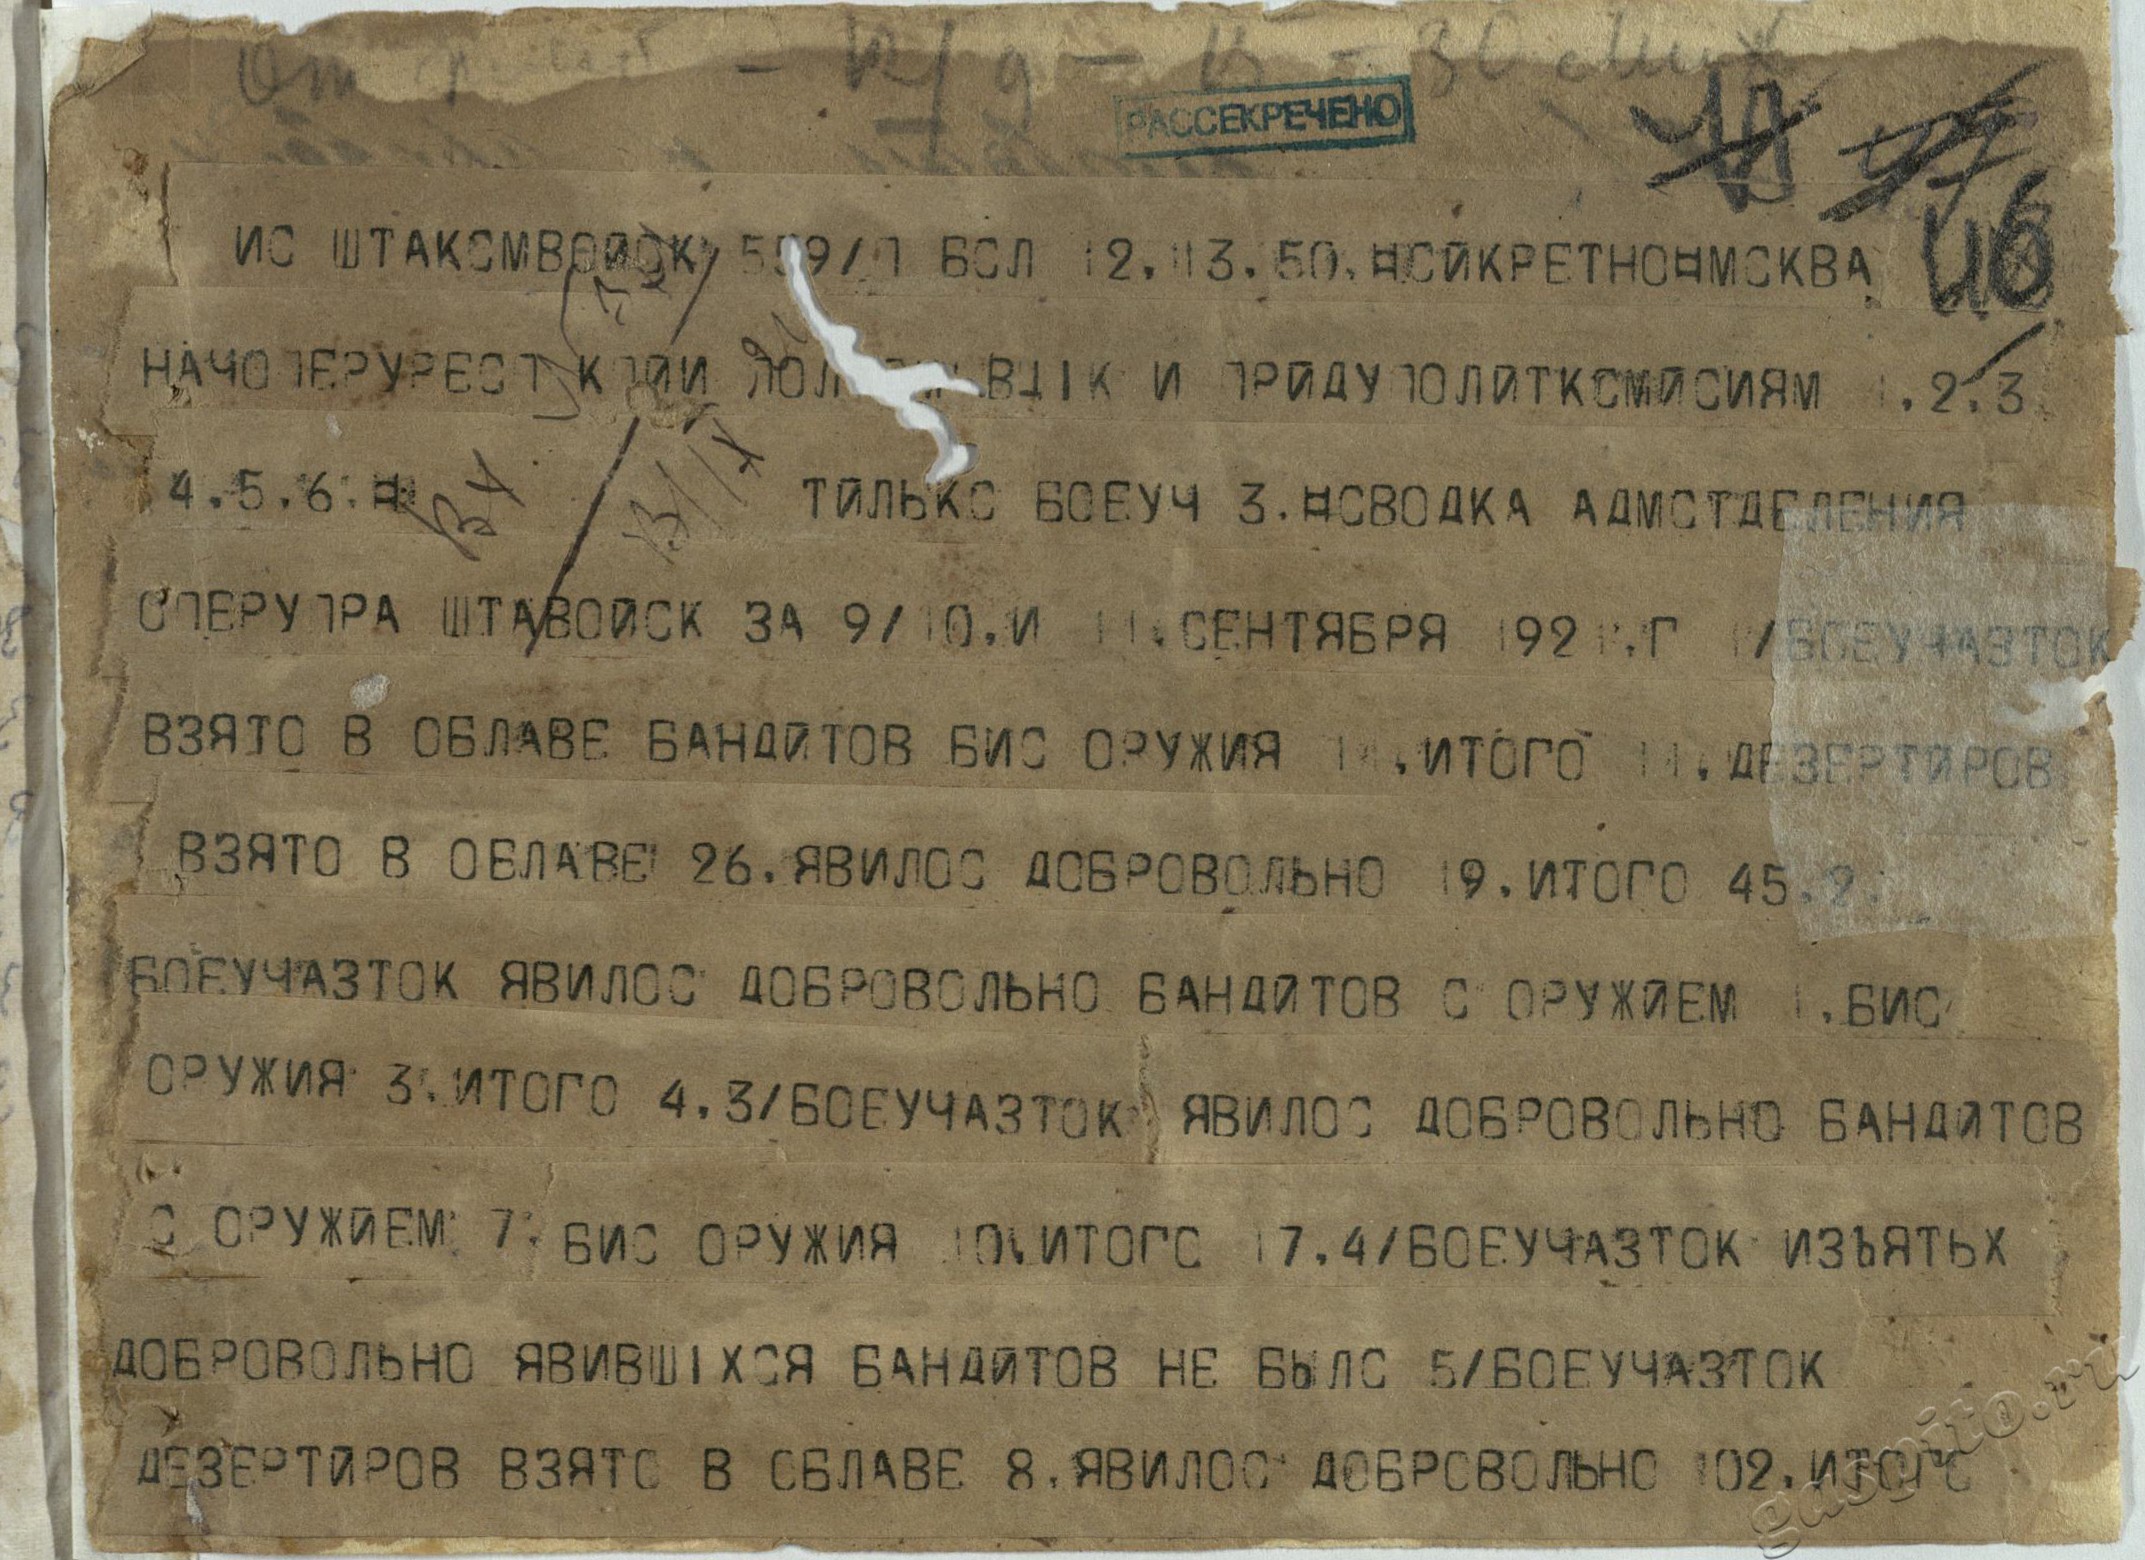 РАССЕКРЕЧЕНО
46
ИС ШТАКСМВОЙСК 559/П БСЛ 12.113.50.¤СЙКРЕТНО¤МСКВА
И ПРЙДУПОЛИТКСМЙСИЯМ 1.2.3
4.5.6.¤ ТЙЛЬКС БОЕУЧ 3.¤СВОДКА АДМСТДЕЛЕНИЯ
СПЕРУПРА ШТАВОЙСК ЗА 9/10.И 11.СЕНТЯБРЯ 1921.Г 1/БОЕУЧАЗТОК
ВЗЯТО В ОБЛАВЕ БАНДЙТОВ БИС ОРУЖИЯ 11.ИТОГО 11.ДЕЗЕРТЙРОВ
ВЗЯТО В ОБЛАВЕ 26.ЯВИЛОС ДОБРОВОЛЬНО 19.ИТОГО 45.2.
БОЕУЧАЗТОК ЯВИЛОС ДОБРОВОЛЬНО БАНДЙТОВ С ОРУЖЙЕМ 1.БИС
ОРУЖИЯ 3.ИТОГО 4.3/БОЕУЧАЗТОК ЯВИЛОС ДОБРОВОЛЬНО БАНДЙТОВ
С ОРУЖЙЕМ 7. БИС ОРУЖИЯ 10.ИТОГС 17.4/БОЕУЧАЗТОК ИЗЪЯТЬХ
ДОБРОВОЛЬНО ЯВИВШІХСЯ БАНДЙТОВ НЕ БЫЛС 5/БОЕУЧАЗТОК
ДЕЗЕРТЙРОВ ВЗЯТС В СБЛАВЕ 8.ЯВИЛОС ДОБРСВОЛЬНО 102.ИТОГС
gaspito.ru